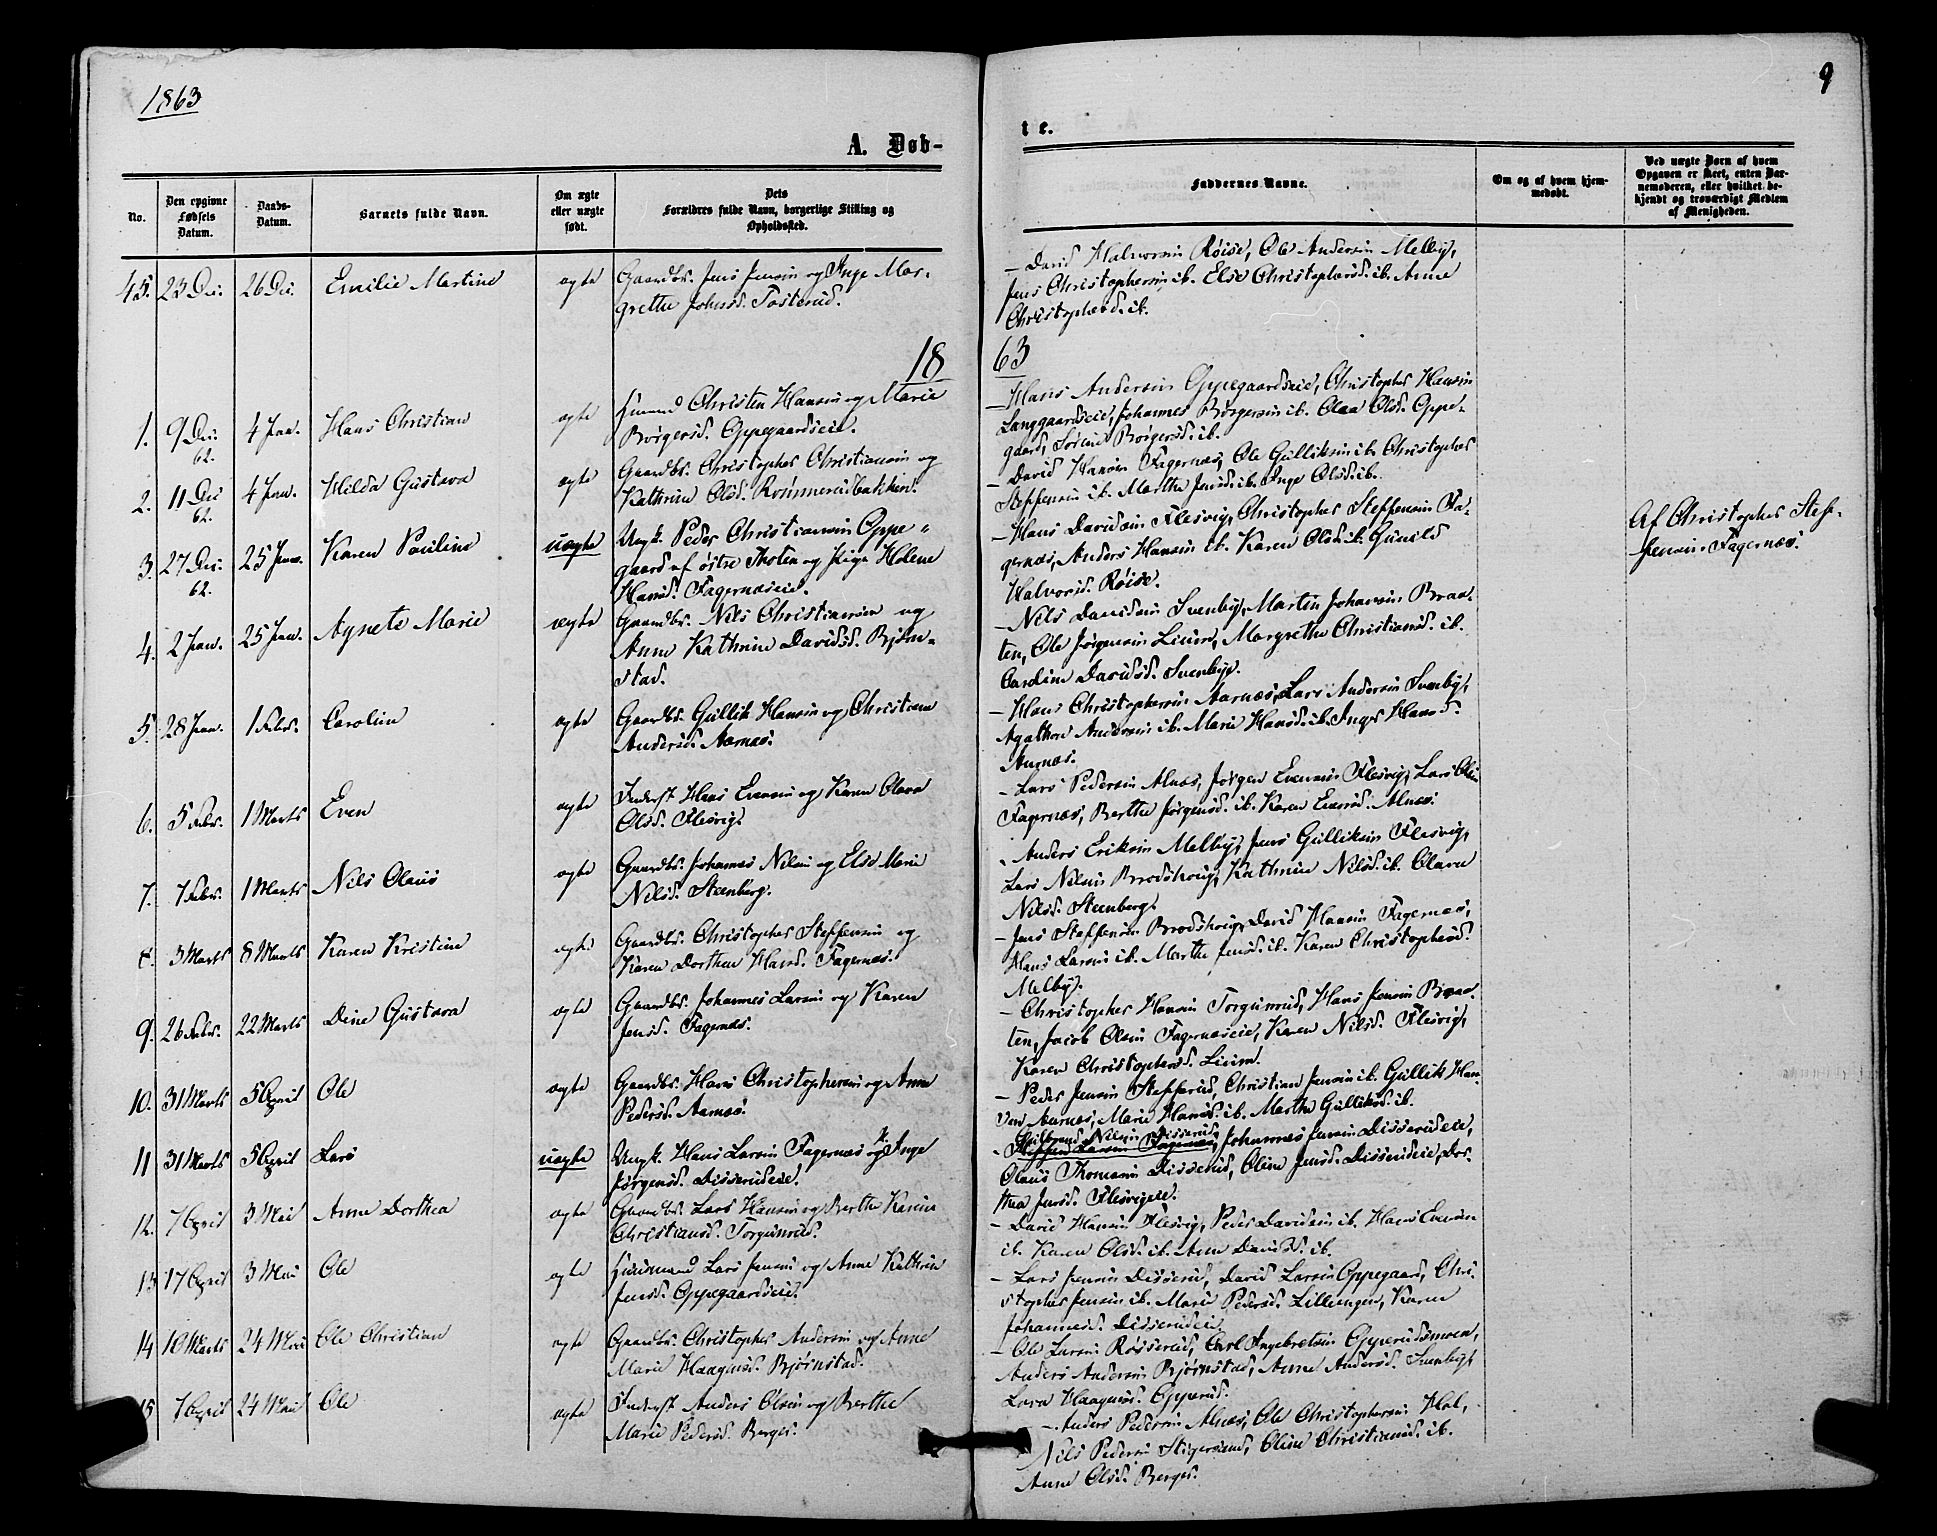 1863
9
A. Døb-
t e.
No.
Den opgivne Fødsels Datum.
Daabs-Datum.
Barnets fulde Navn.
Om ægte eller uægte født.
Dets Forældres fulde Navn, borgerlige Stilling og Opholdssted.
Faddernes Navne.
Om og af hvem hjemmedøbt.
Ved uægte Børn af hvem Opgaven er skeet, enten Barnemoderen, eller hvilket bekjendt og troværdigt Medlem af Menigheden.
45. 23 Dec. 26 Dec. Emilie Martine ægte Gaardbr. Jens Jensen og Inge Mar-
grethe Johnsd. Tosterud.
- David Halvorsen Røise, Ole Andersen Melby,
Jens Christophersen ib. Else Christophersd. ib. Anne
Christophersd. ib.
1863
1. 9 Dec. 62. 4 Jan. Hans Christian ægte Husmand Christen Hansen og Marie
Børgersd. Oppegaardseie.
- Hans Andersen Oppegaardseie, Christopher Hansen
Langgaardseie, Johannes Børgersen ib. Olea Olsd. Oppe-
gaard, Sørine Børgersd. ib.
2. 11 Dec 62. 4 Jan. Hilda Gustava ægte Gaardbr. Christopher Christiansen og
Kathrine Olsd. Rømmerudbakken.
- David Hansen Fagernæs, Ole Gulliksen ib. Christopher
Steffensen ib. Marthe Jensd. ib. Inge Olsd. ib.
3. 27 Dec. 62. 25 Jan. Karen Pauline uægte Ungk. Peder Christiansen Oppe-
gaard af østre Thoten og Pige Helene
Hansd. Fagernæseie.
- Hans Davidsen Flesvig, Christopher Steffensen Fa-
gernæs, Anders Hansen ib. Karen Olsd. ib. Gunild
Halvorsd. Røise.
Af Christopher Stef-
fensen Fagernæs.
4. 2 Jan. 25 Jan. Agnete Marie ægte Gaardbr. Nils Christiansen og
Anne Kathrine Davidsd. Bjørn-
stad.
- Nils Davidsen Svenby, Martin Johansen Braa-
ten, Ole Jørgensen Liium, Margrethe Christiansd. ib.
Caroline Davidsd. Svenbye.
5. 28 Jan. 1 Febr. Caroline ægte Gaardbr. Gullik Hansen og Christiane
Andersd. Aarnæs.
- Hans Christophersen Aarnæs, Lars Andersen Svenby,
Agathon Andersen ib. Marie Hansd. ib. Inger Hansd.
Aarnæs.
6. 5 Febr. 1 Marts Even ægte Inderst Hans Evensen og Karen Olava
Olsd. Flesvig.
- Lars Pedersen Alnæs, Jørgen Evensen Flesvig, Lars Olsen
Fagernæs, Berthe Jørgensd. ib. Karen Evensd. Alnæs.
7. 7 Febr. 1 Marts Nils Olaus ægte Gaardbr. Johannes Nilsen og Else Marie
Nilsd. Steenberg.
- Anders Eriksen Melby, Jens Gulliksen Flesvig,
Lars Nilsen Brodshoug, Kathrine Nilsd. ib. Olava
Nilsd. Steenberg.
8. 3 Marts 8 Marts Karen Kristine ægte Gaardbr. Christopher Steffensen og
Karen Dorthea Hansd. Fagernæs.
- Jens Steffensen Brodshoug, David Hansen Fagernæs,
Hans Larsen ib. Marthe Jensd. ib. Karen Christophersd.
Melby.
9. 26 Febr. 22 Marts Dine Gustava ægte Gaardbr. Johannes Larsen og Karen
Jensd. Fagernæs.
- Christopher Hansen Torgunrud, Hans Jensen Braa-
ten, Jacob Olsen Fagernæseie, Karen Nilsd. Flesvig,
Karen Christophersd. Liium.
10. 31 Marts 5 April Ole ægte Gaardbr. Hans Christophersen og Anne
Pedersd. Aarnæs.
- Peder Jensen Stefferud, Christian Jensen ib. Gullik Han-
sen Aarnæs, Marie Hansd. ib. Marthe Gulliksd. ib.
11 31 Marts 5 April Lars uægte Ungk. Hans Larsen Fagernæs og P. Inge
Jørgensd. Disserudeie.
Gulbrand Nilsen Disserud,
- Steffen Larsen Fagernæs, Johannes Jensen Disserudeie,
Olaus Thomasen Disserud, Oline Jensd. Disserudeie, Dor-
thea Jensd. Flesvigeie.
12. 7 April 3 Mai Anne Dorthea ægte Gaardbr. Lars Hansen og Berthe Karine
Christiansd. Torgunrud.
- David Hansen Flesvig, Peder Davidsen ib. Hans Evensen
ib. Karen Olsd. ib. Anne Davidsd. ib.
13 17 April 3 Mai Ole ægte Huusmand Lars Jensen og Anne Kathrine
Jensd. Oppegaardseie.
- Lars Jensen Disserud, David Larsen Oppegaard, Chri-
stopher Jensen ib. Marie Pedersd. Lilliengen, Karen
Johannesd. Disserudeie.
14 10 Marts 24 Mai Ole Christian ægte Gaardbr. Christopher Andersen og Anne
Marie Haagensd. Bjørnstad.
- Ole Larsen Røsserud, Carl Ingebretsen Opperudsmoen,
Anders Andersen Bjørnstad, Anne Andersd. Svenby,
Lava Haagensd. Opperud.
15 7 April 24 Mai Ole ægte Inderst Anders Olsen og Berthe
Marie Pedersd. Berger.
- Anders Pedersen Alnæs, Ole Christophersen Hol,
Nils Pedersen Stigersand, Oline Christiansd. ib.
Anne Olsd. Berger.